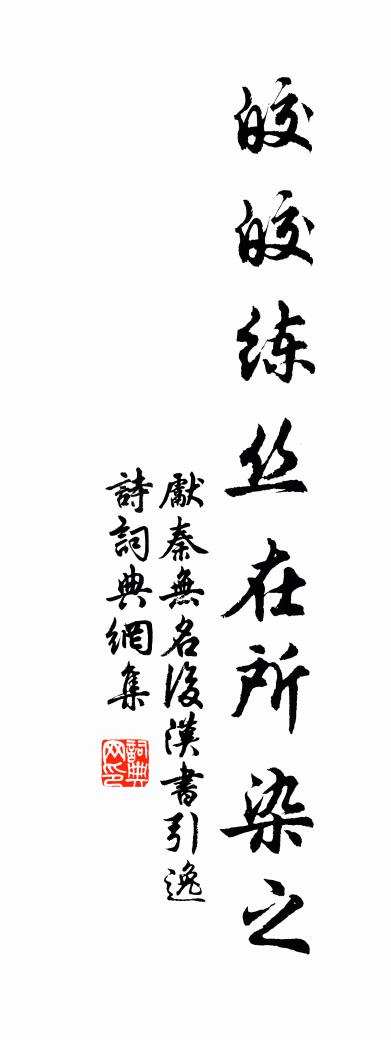 皎皎练丝在所染之
獻秦無名後漢書引逸
詩詞典網集
詞典網印